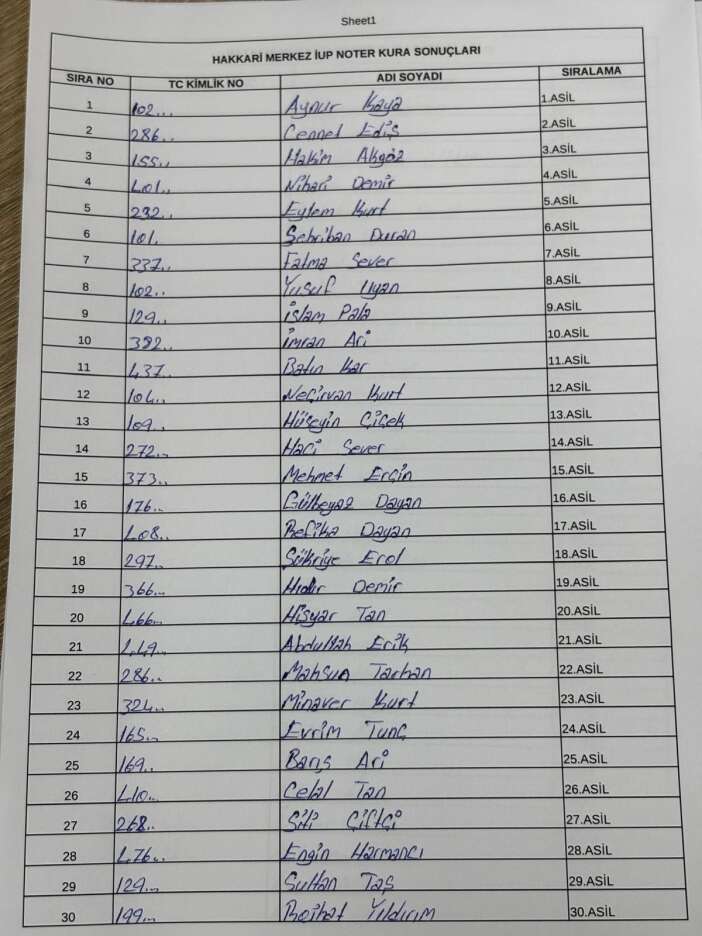 Sheet1
HAKKARİ MERKEZ İUP NOTER KURA SONUÇLARI
SIRA NO TC KİMLİK NO ADI SOYADI SIRALAMA
1 102... Aynur Kaya 1.ASİL
2 286... Cennet Ediş 2.ASİL
3 155.. Hakim Akgöz 3.ASİL
4 401.. Nihari Demir 4.ASİL
5 232.. Eylem Kurt 5.ASİL
6 101. Şehriban Duran 6.ASİL
7 337.. Fatma Sever 7.ASİL
8 102.. Yusuf Uyan 8.ASİL
9 129.. İslam Pala 9.ASİL
10 392.. İmran Ari 10.ASİL
11 437.. Batın Kar 11.ASİL
12 104.. Neçirvan Kurt 12.ASİL
13 109.. Hüseyin Çiçek 13.ASİL
14 272... Haci Sever 14.ASİL
15 373.. Mehmet Erçin 15.ASİL
16 176... Gülbeyaz Dayan 16.ASİL
17 408.. Refika Dayan 17.ASİL
18 297.. Şükriye Erol 18.ASİL
19 366... Hıdır Demir 19.ASİL
20 466... Hişyar Tan 20.ASİL
21 449... Abdullah Erik 21.ASİL
22 286.. Mahsun Tarhan 22.ASİL
23 324... Minaver Kurt 23.ASİL
24 165... Evrim Tunç 24.ASİL
25 169.. Barış Ari 25.ASİL
26 410... Celal Tan 26.ASİL
27 268.. Siti Çiftçi 27.ASİL
28 476... Engin Harmancı 28.ASİL
29 129... Sultan Taş 29.ASİL
30 199... Rojhat Yıldırım 30.ASİL